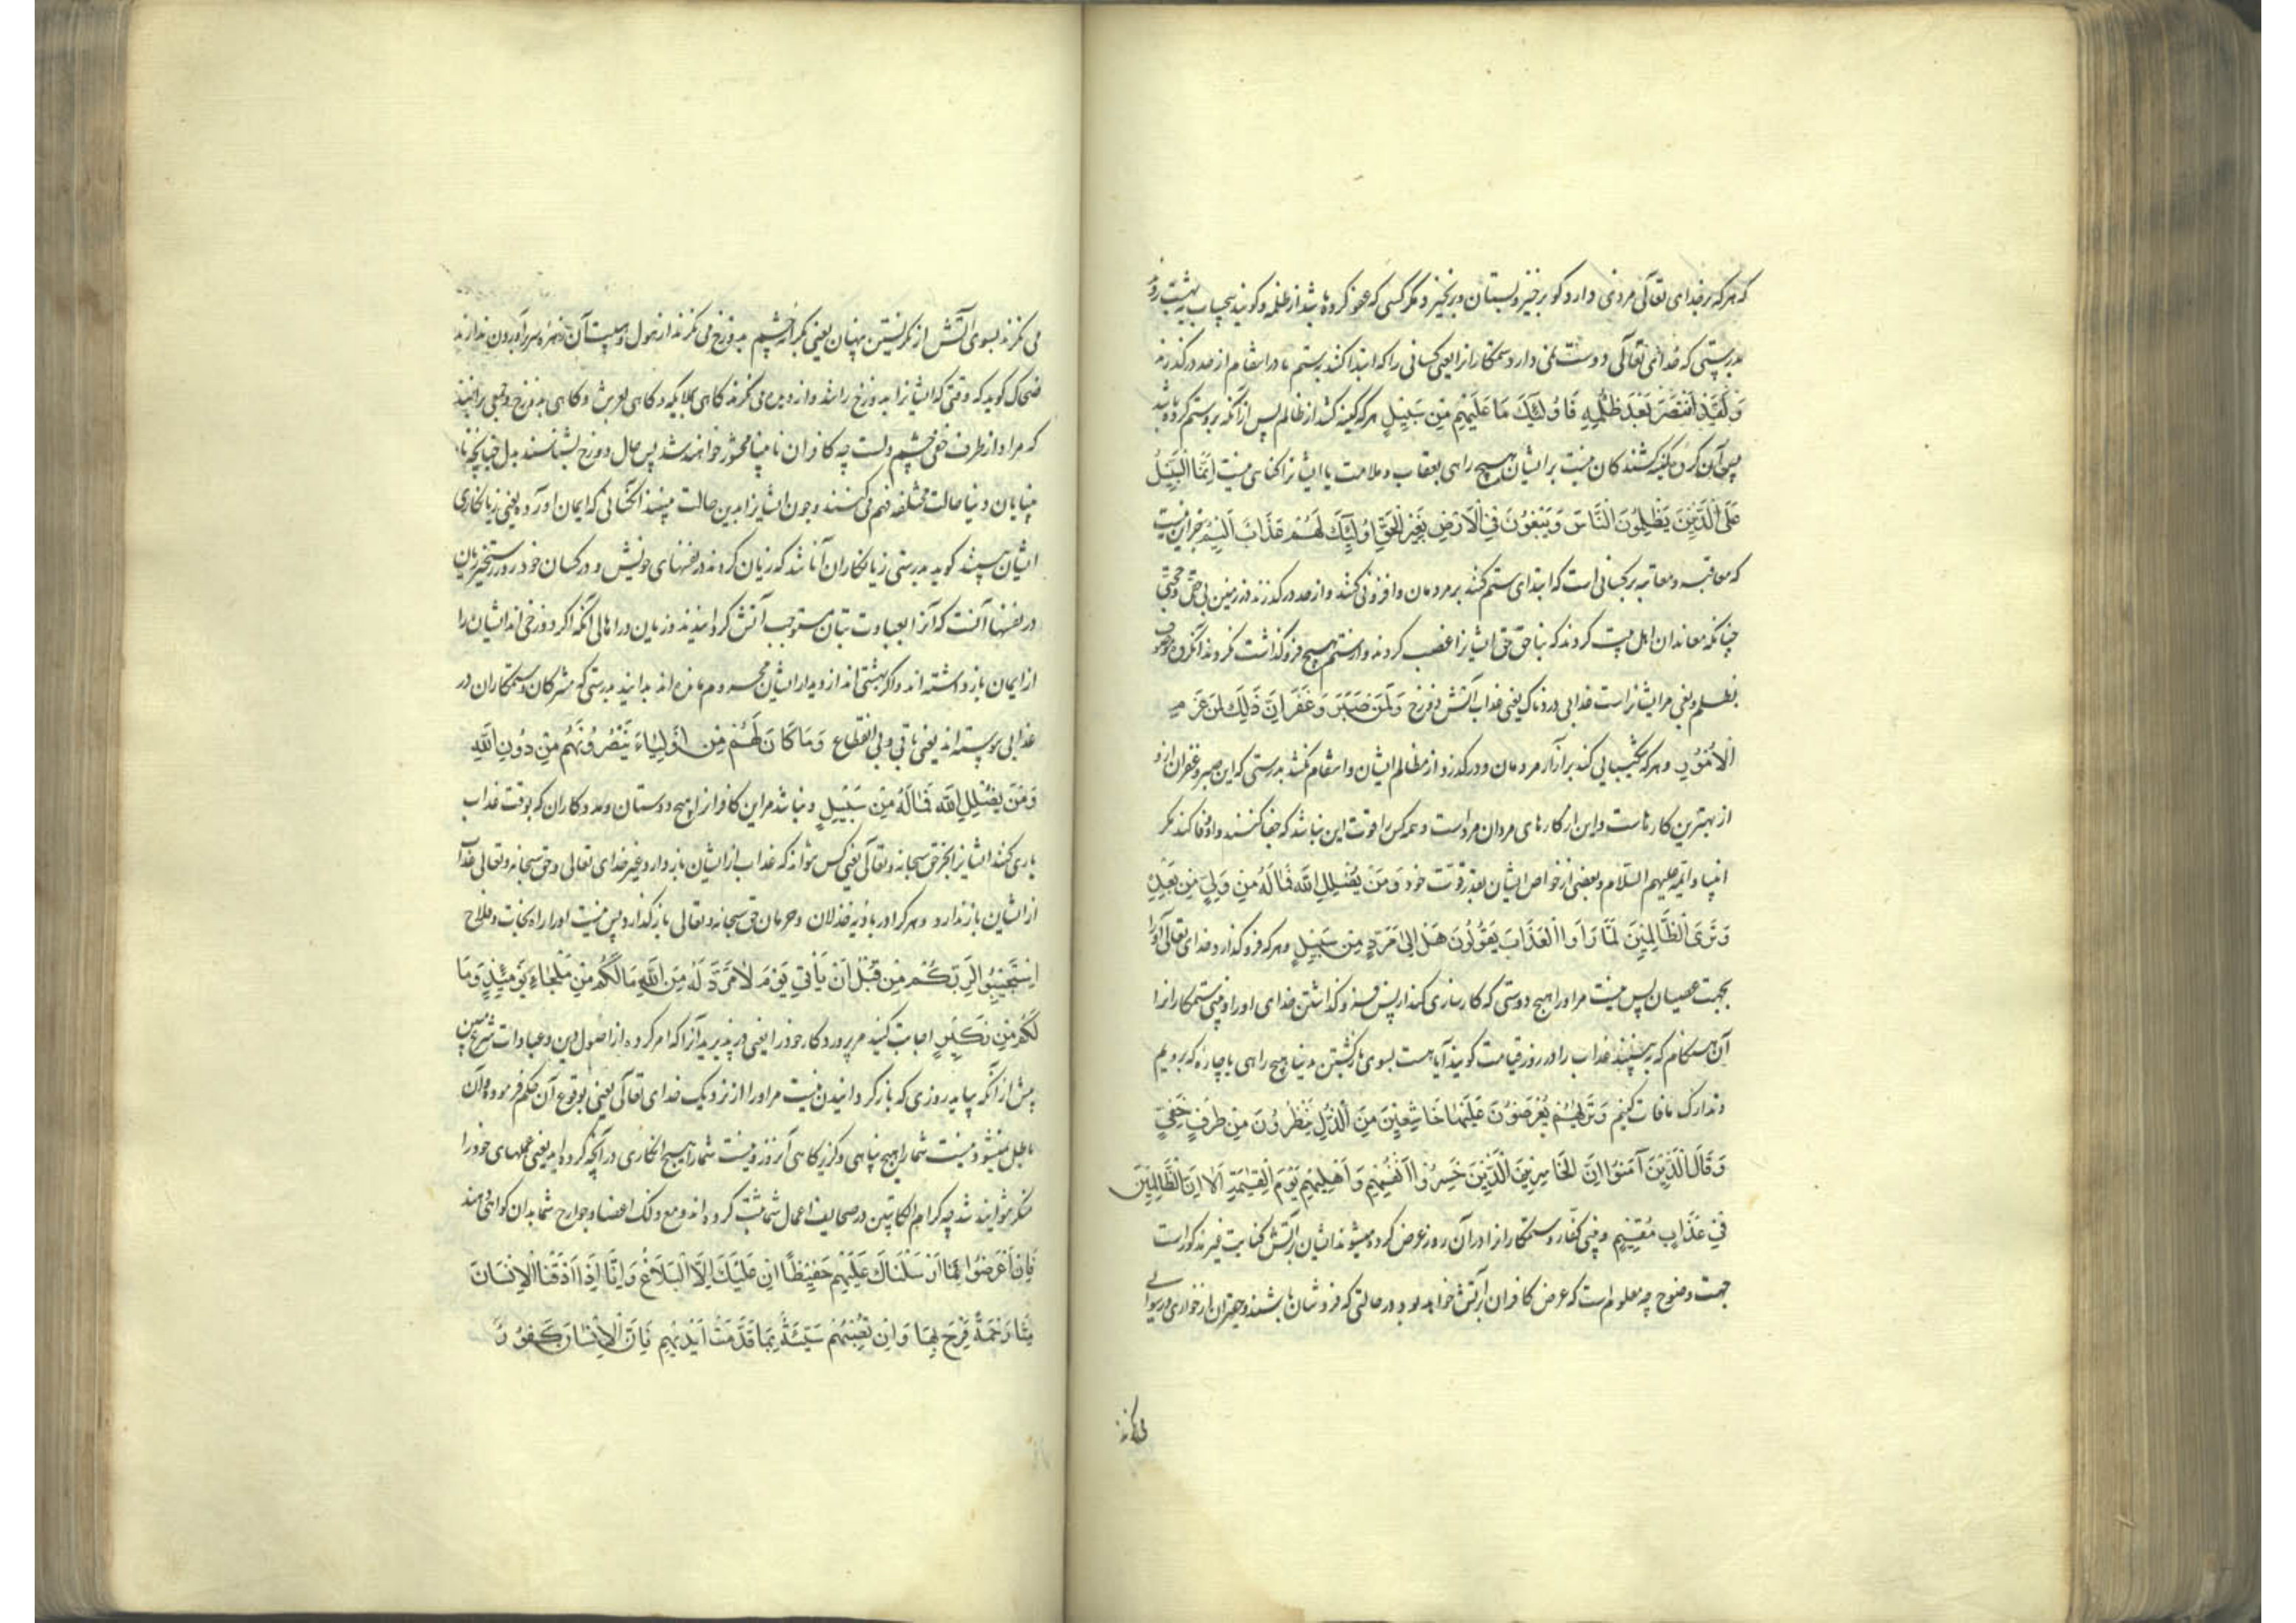 که هر که بر خدای تعالی مزدی دارد کو برخیز و بستان و برنخیزد مگر کسی که عفو کرده باشد از ظلمه و گویند بیحساب به بهشت رو
بدرستی که خدای تعالی دوست نمی دارد ستمکارانرا یعنی کسانی را که ابتدا کنند بستم یا در انتقام از حد درگذرند
وَلَمَنِ انْتَصَرَ بَعْدَ ظُلْمِهِ فَاُولٰئِكَ مَا عَلَيْهِمْ مِنْ سَبِيلٍ هر که کینه کشد از ظالم پس از آنکه بر و ستم کرده باشد
پس آن گروه کینه کشندکان نیست بر ایشان هیچ راهی بعقاب و ملامت یا ایشانرا گناهی نیست اِنَّمَا السَّبِيلُ
عَلَى الَّذِينَ يَظْلِمُونَ النَّاسَ وَيَبْغُونَ فِي الْاَرْضِ بِغَيْرِ الْحَقِّ اُولٰئِكَ لَهُمْ عَذَابٌ اَلِيمٌ جز این نیست
که معاقبه و معاتبه بر کسانی است که ابتدای ستم کنند بر مردمان و افزونی کنند و از حد درگذرند در زمین بی حق و حجتی
چنانکه معاندان اهل بیت کردند که بناحق حق ایشانرا غصب کردند و از ستم هیچ فروگذاشت نکردند آنگروه موصوف
بظلم و بغی مر ایشانراست عذابی دردناک یعنی عذاب آتش دوزخ وَلَمَنْ صَبَرَ وَغَفَرَ اِنَّ ذٰلِكَ لَمِنْ عَزْمِ
الْاُمُورِ و هر که شکیبایی کند بر آزار مردمان و درگذرد از مظالم ایشان و انتقام نکشد بدرستی که این صبر و غفران از و
از بهترین کارهاست و این از کارهای مردان مرد است و همه کس را قوت این نباشد که جفا کشند و او وفا کند مگر
انبیا و ائمه علیهم السلام و بعضی از خواص ایشان بقدر قوّت خود وَمَنْ يُضْلِلِ اللهُ فَمَا لَهُ مِنْ وَلِيٍّ مِنْ بَعْدِهِ
وَتَرَى الظَّالِمِينَ لَمَّا رَاَوُا الْعَذَابَ يَقُولُونَ هَلْ اِلٰى مَرَدٍّ مِنْ سَبِيلٍ و هر که فروگذارد خدای تعالی او را
بجهت عصیان پس نیست مر او را هیچ دوستی که کارسازی کند از پس فروگذاشتن خدای او را و بینی ستمکارانرا
آن هنگام که به بینند عذاب را در روز قیامت گویند آیا هست بسوی بازگشتن دنیا هیچ راهی یا چاره که برویم
و تدارک مافات کنیم وَتَرٰيهُمْ يُعْرَضُونَ عَلَيْهَا خَاشِعِينَ مِنَ الذُّلِّ يَنْظُرُونَ مِنْ طَرْفٍ خَفِيٍّ
وَقَالَ الَّذِينَ آمَنُوا اِنَّ الْخَاسِرِينَ الَّذِينَ خَسِرُوا اَنْفُسَهُمْ وَاَهْلِيهِمْ يَوْمَ الْقِيٰمَةِ اَلَا اِنَّ الظَّالِمِينَ
فِي عَذَابٍ مُقِيمٍ و بینی کفار و ستمکارانرا در آن روز عرض کرده میشوند ایشان بر آتش کنایت غیر مذکور است
جهت وضوح چه معلوم است که عرض کافران بر آتش خواهد بود در حالتی که فروشان باشند و حقیران از خواری و رسوایی
می نگرند
می نگرند بسوی آتش از نگریستن پنهان یعنی بگوشه چشم بدوزخ می نگرند از هول و هیبت آن زهره سر برآوردن ندارند
ضحاک گوید که وقتی که ایشانرا بدوزخ رانند و از دور می نگرند گاهی بملایکه و گاهی بعرش و گاهی بدوزخ و جمعی برانند
که مراد از طرف خفی چشم دلست چه کافران نابینا محشور خواهند شد پس حال دوزخ بشناسند بدل چنانچه نا
بینایان دنیا حالت مختلفه فهم می کنند و چون ایشانرا بدین حالت ببینند آنکسانی که ایمان آورده یعنی زیانکاری
ایشان ببینند گویند بدرستی زیانکاران آنانند که زیان کردند در نفسهای خویش و در کسان خود در روز رستخیز زیان
در نفسها آنست که آنرا بعبادت بتان مستوجب آتش گردانیدند و زیان در اهالی آنکه اگر دوزخی اند ایشان را
از ایمان باز داشته اند و اگر بهشتی اند از دیدار ایشان محروم مانده اند بدانید بدرستی که مشرکان و ستمکاران در
عذابی پیوسته اند یعنی باقی و بی انقطاع وَمَا كَانَ لَهُمْ مِنْ اَوْلِيَاءَ يَنْصُرُونَهُمْ مِنْ دُونِ اللهِ
وَمَنْ يُضْلِلِ اللهُ فَمَا لَهُ مِنْ سَبِيلٍ و نباشد مر این کافرانرا هیچ دوستان و مددکاران که بوقت عذاب
یاری کنند ایشانرا بجز حق سبحانه و تعالی یعنی کس نتواند که عذاب از ایشان باز دارد غیر خدای تعالی و حق سبحانه و تعالی عذاب
از ایشان باز ندارد و هر کرا در بادیه خذلان و حرمان حق سبحانه و تعالی باز گذارد پس نیست او را راه نجات و فلاح
اِسْتَجِيبُوا لِرَبِّكُمْ مِنْ قَبْلِ اَنْ يَأْتِيَ يَوْمٌ لَا مَرَدَّ لَهُ مِنَ اللهِ مَا لَكُمْ مِنْ مَلْجَاءٍ يَوْمَئِذٍ وَمَا
لَكُمْ مِنْ نَكِيرٍ اجابت کنید مر پروردگار خود را یعنی در پذیرید آنرا که امر کرده از اصول دین و عبادات شرع مبین
پیش از آنکه بیاید روزی که باز گردانیدن نیست مر او را از نزدیک خدای تعالی یعنی بوقوع آن حکم فرموده و آن
باطل نمیشود نیست شما را هیچ پناهی و گریزگاهی آنروز و نیست شما را هیچ انکاری در آنچه کرده اید یعنی عملهای خود را
منکر نتوانید شد چه کرام الکاتبین در صحایف اعمال شما ثبت کرده اند و مع ذلک اعضا و جوارح شما بدان گواهی دهند
فَاِنْ اَعْرَضُوا فَمَا اَرْسَلْنَاكَ عَلَيْهِمْ حَفِيظًا اِنْ عَلَيْكَ اِلَّا الْبَلَاغُ وَاِنَّا اِذَا اَذَقْنَا الْاِنْسَانَ
مِنَّا رَحْمَةً فَرِحَ بِهَا وَاِنْ تُصِبْهُمْ سَيِّئَةٌ بِمَا قَدَّمَتْ اَيْدِيهِمْ فَاِنَّ الْاِنْسَانَ كَفُورٌ